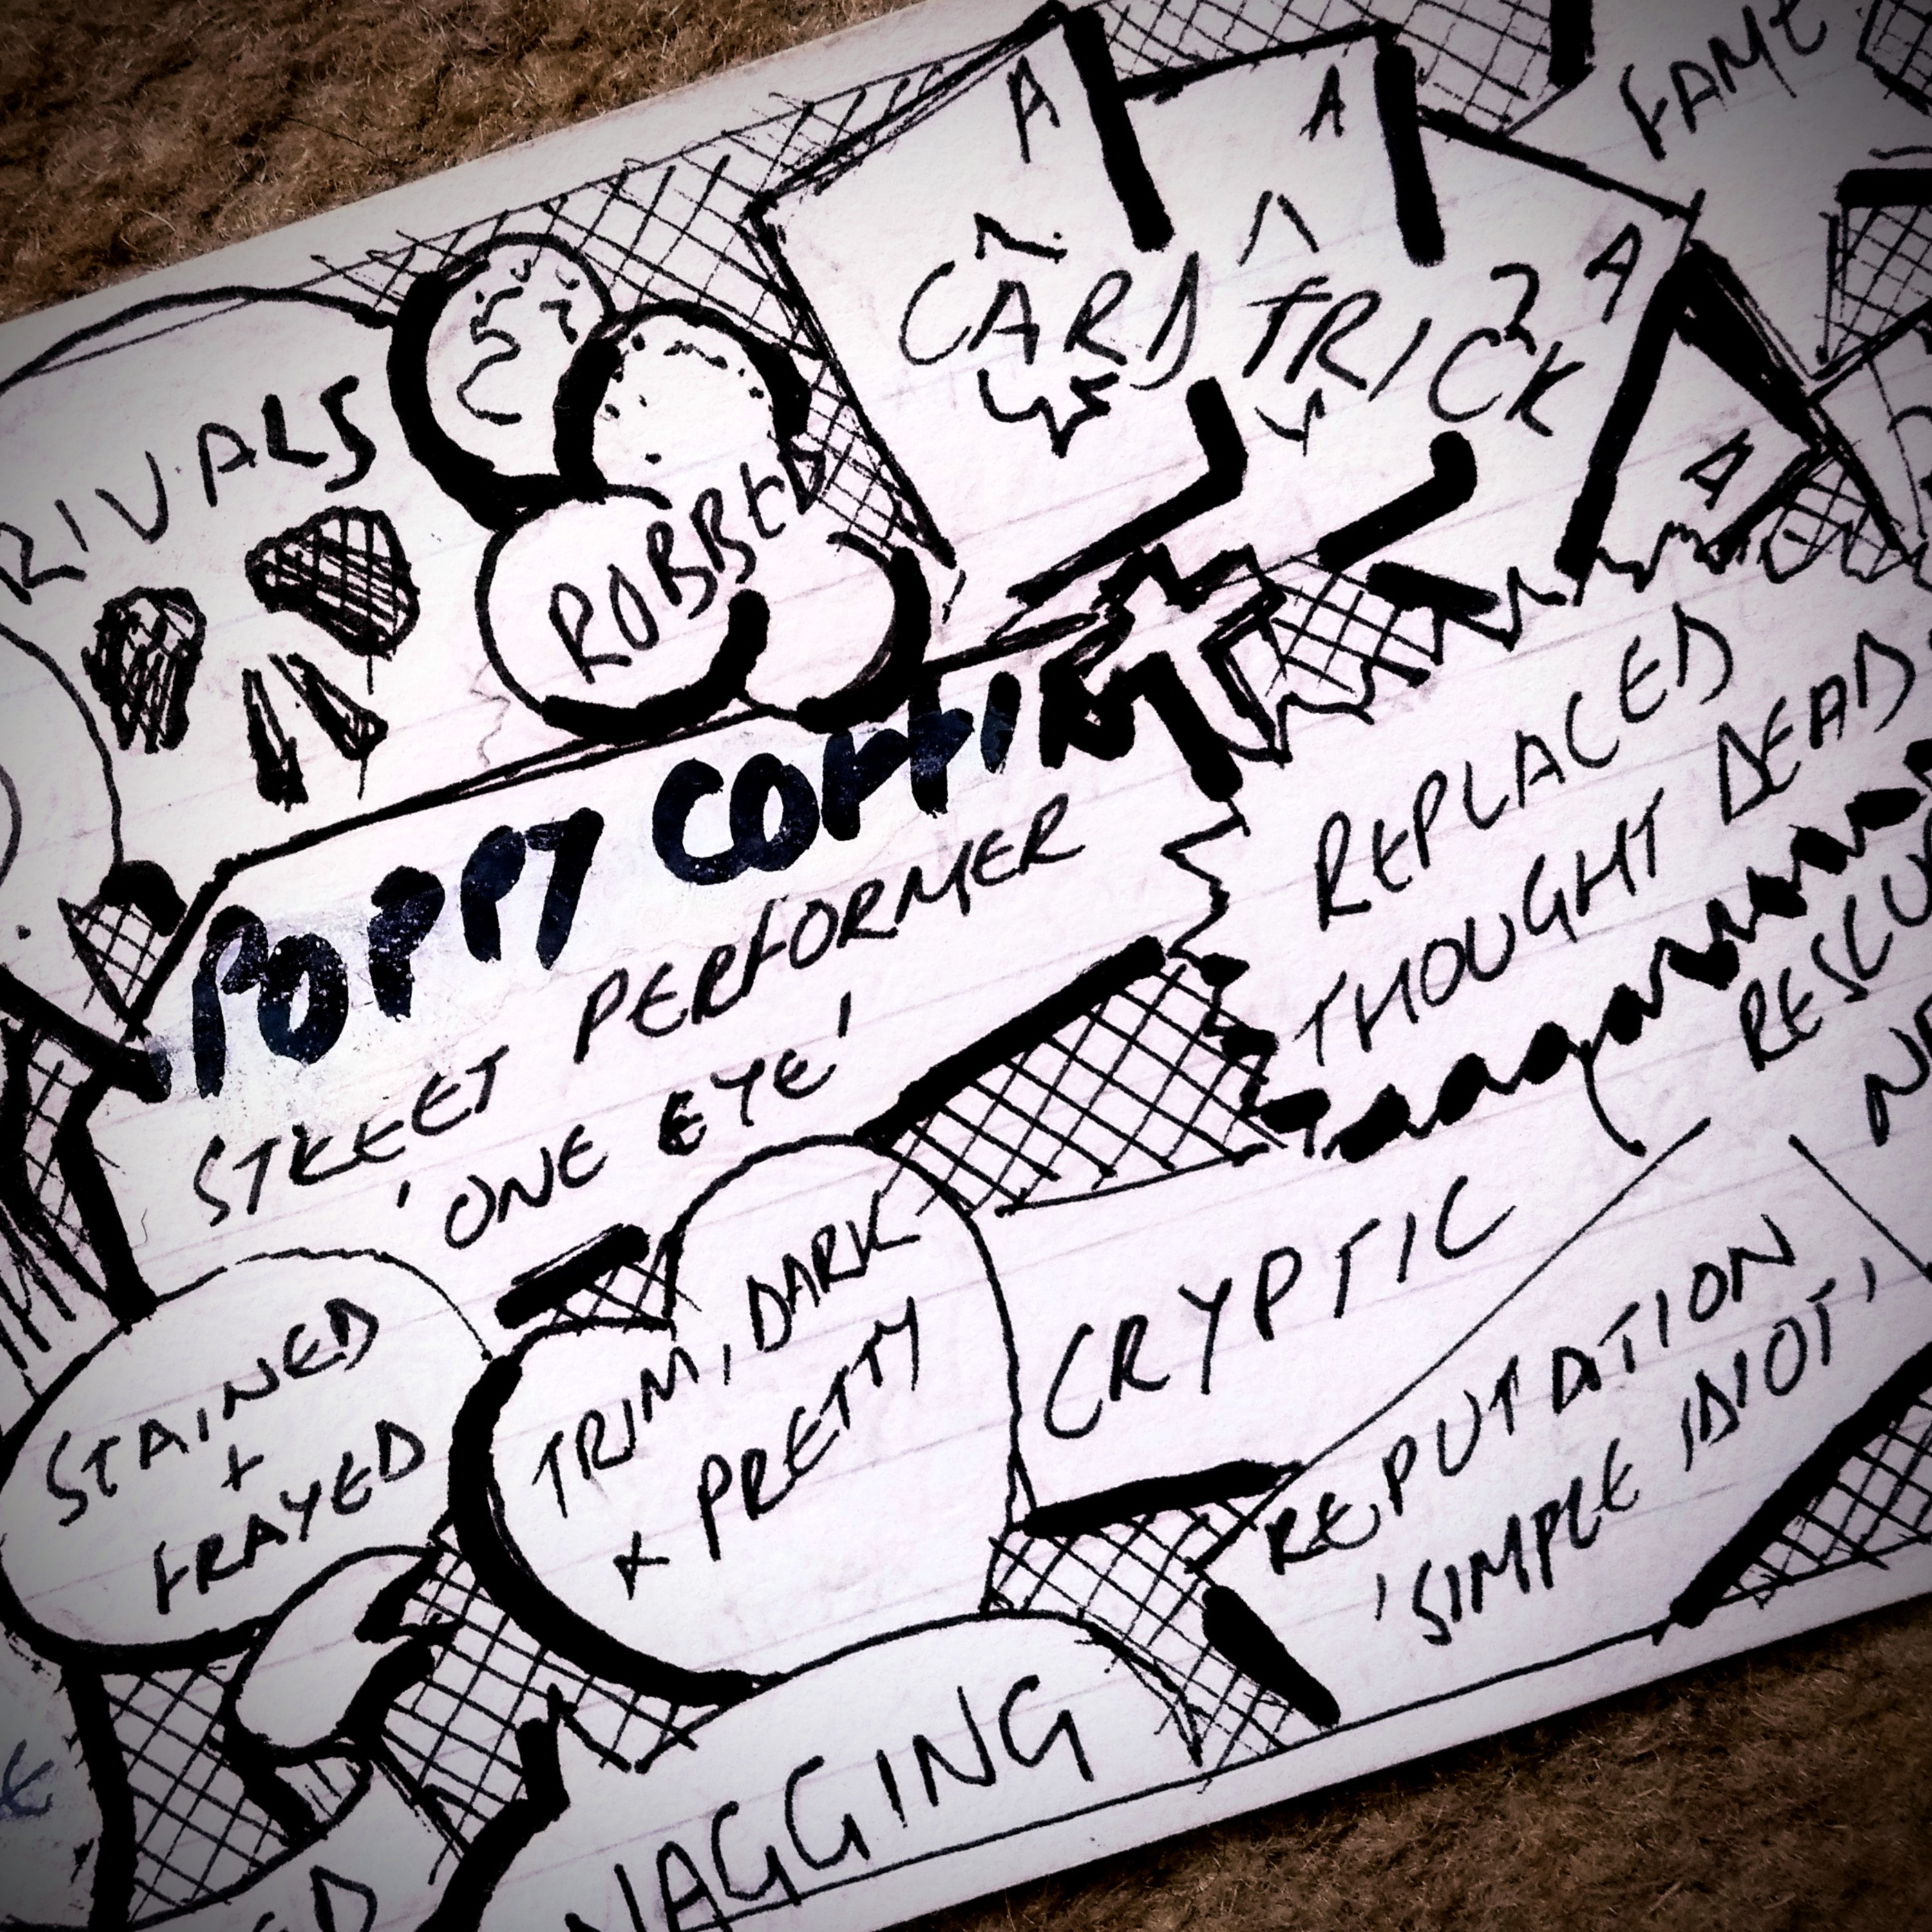 FAME
A
A
A
A
CARD TRICK
RIVALS
ROBBED
POPPY COFFIN
STREET PERFORMER
'ONE EYE'
REPLACED
THOUGHT DEAD
CRYPTIC
REPUTATION
'SIMPLE IDIOT'
TRIM, DARK
+ PRETTY
STAINED
+
FRAYED
NAGGING